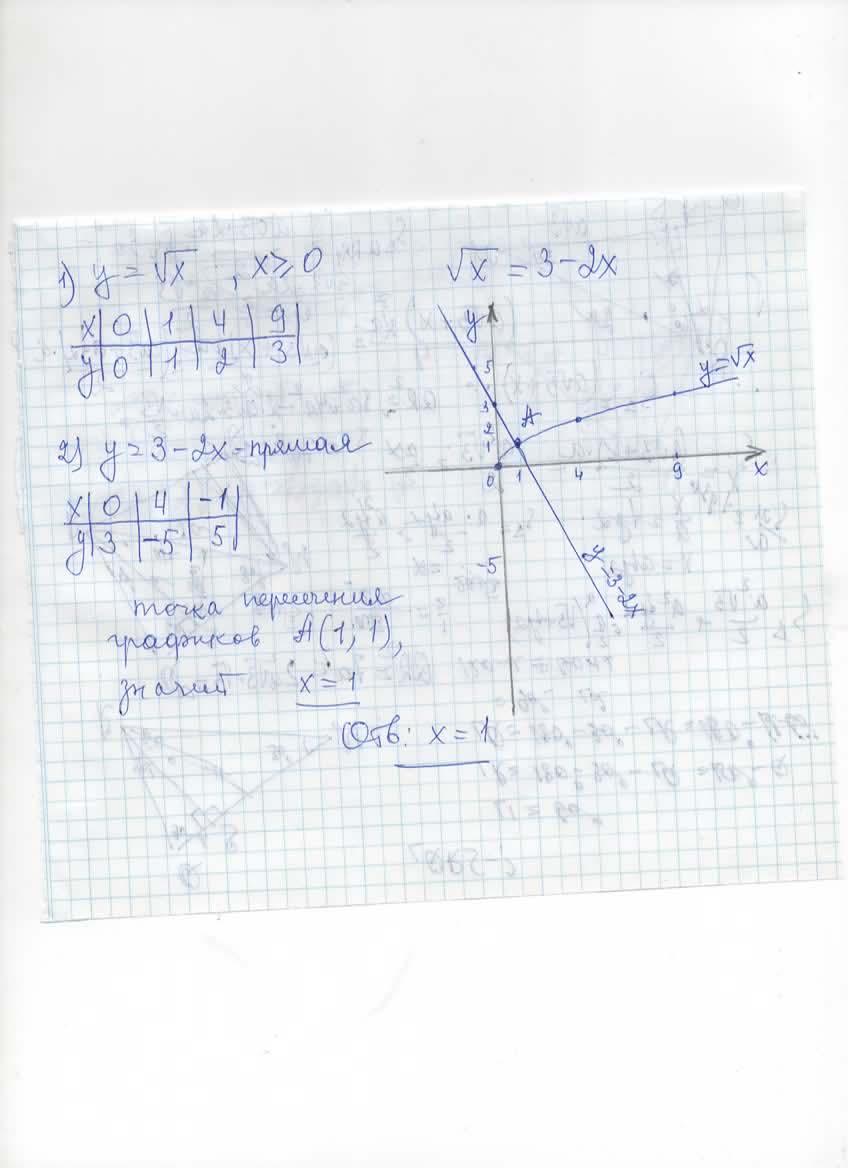 1) y = √x , x ≥ 0
x | 0 | 1 | 4 | 9 |
y | 0 | 1 | 2 | 3 |
2) y = 3 - 2x - прямая
x | 0 | 4 | -1 |
y | 3 | -5 | 5 |
точка пересечения
графиков A(1, 1),
значит x = 1
Отв: x = 1
√x = 3 - 2x
y
5
3
2
1
A
y = √x
0
1
4
9
x
-5
y = 3 - 2x